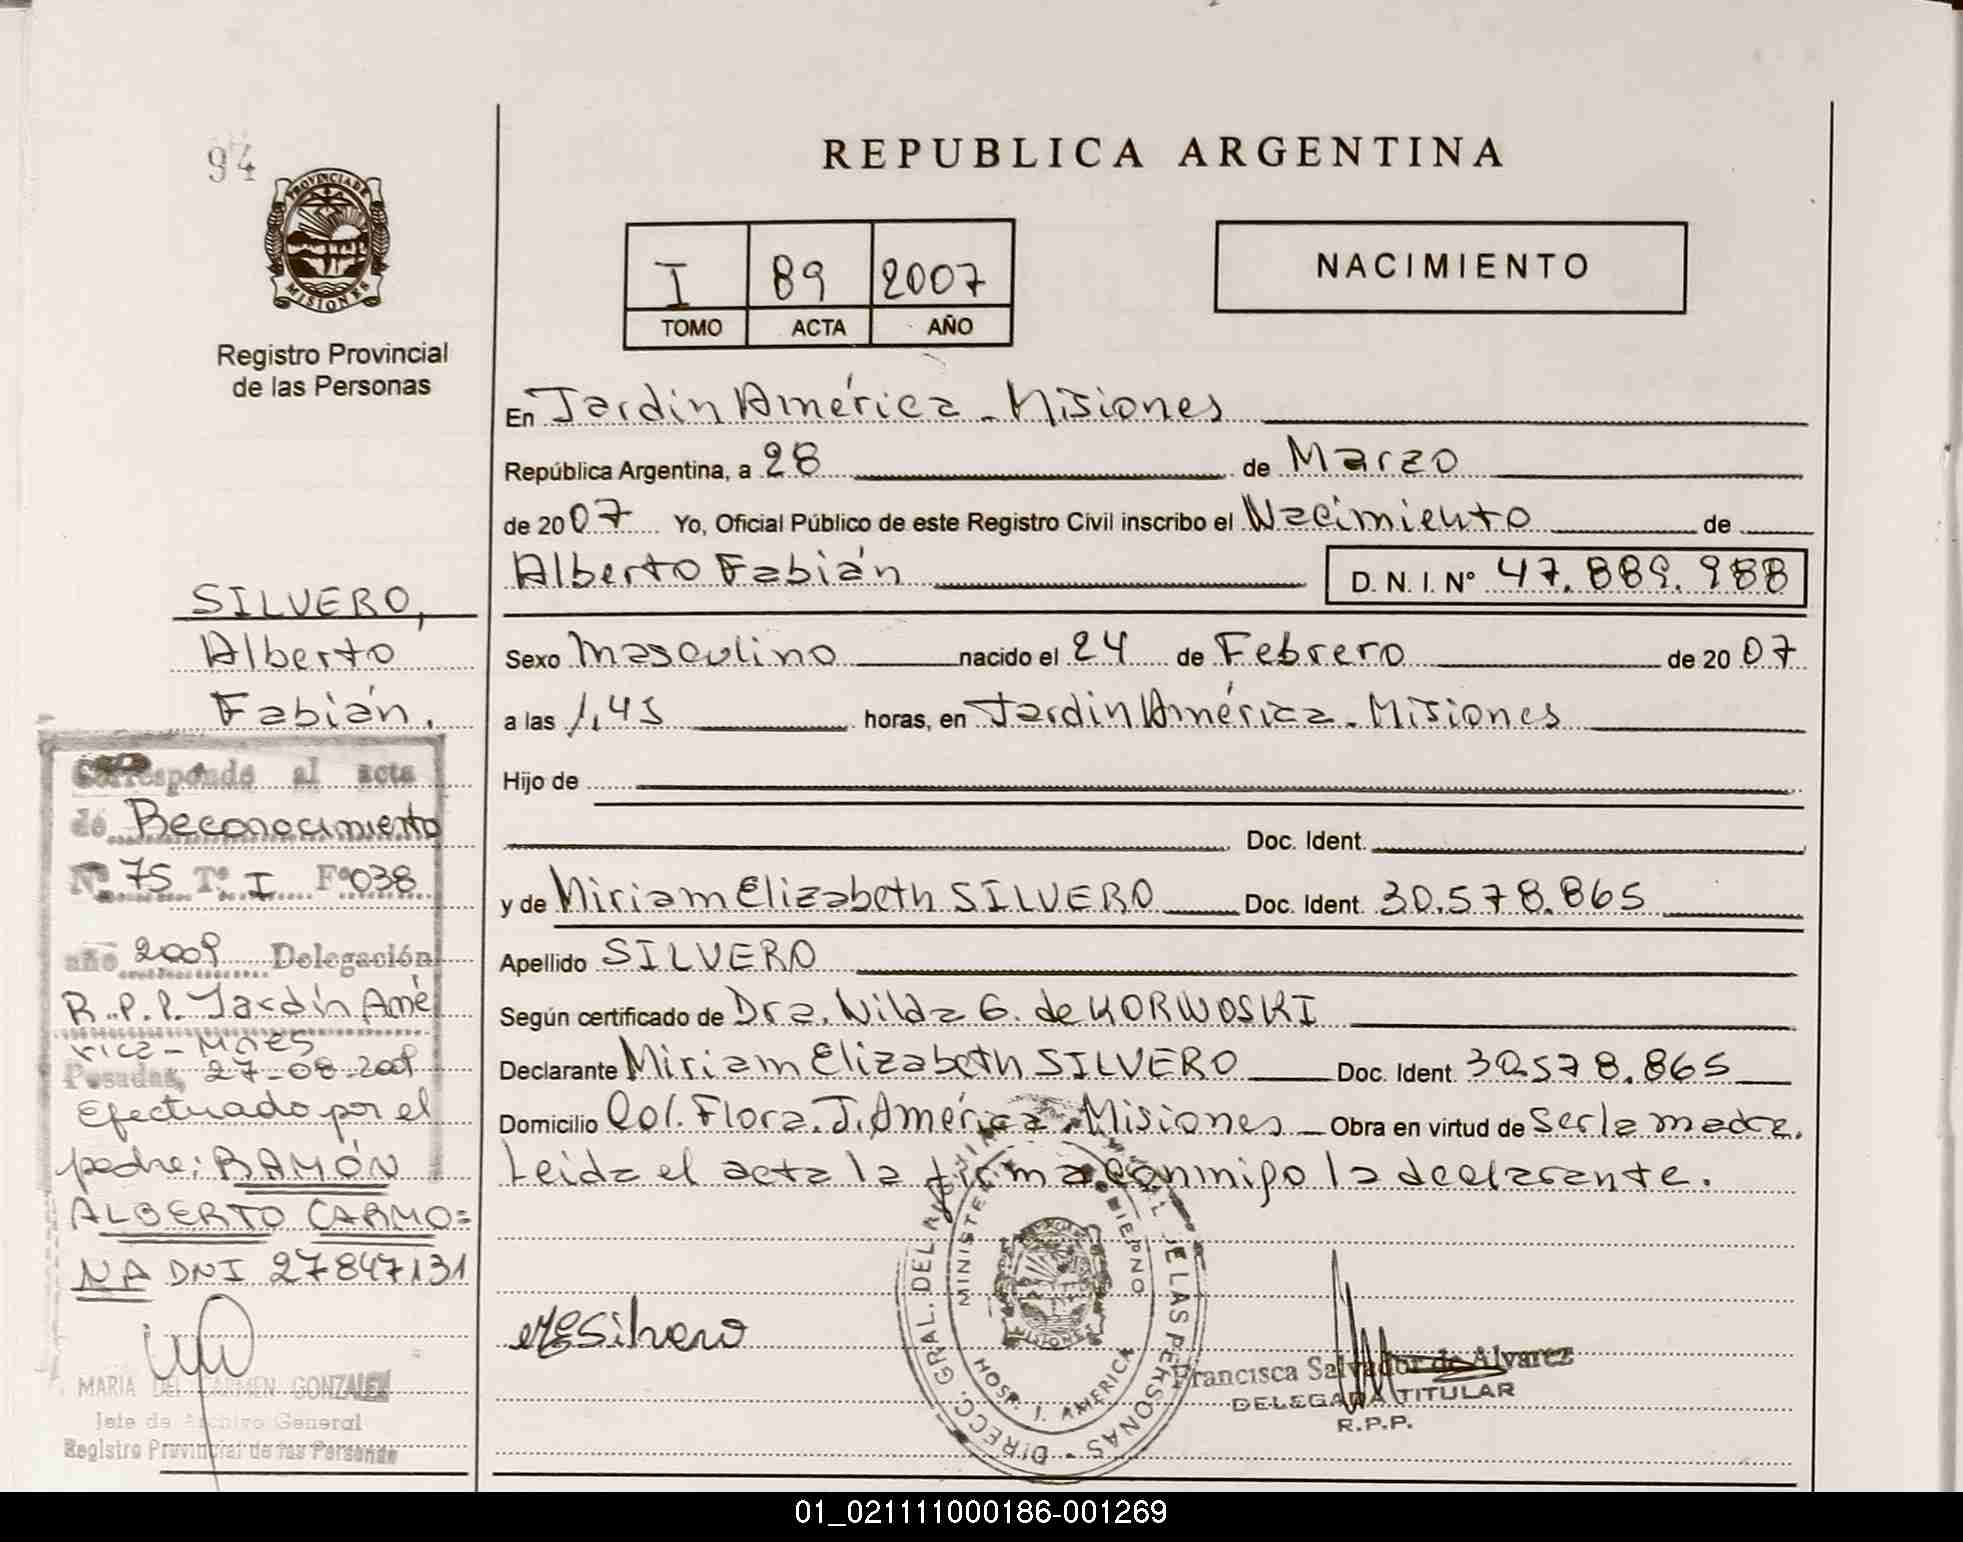 94
PROVINCIA DE
MISIONES
Registro Provincial
de las Personas
REPUBLICA ARGENTINA
I 89 2007
TOMO ACTA AÑO
NACIMIENTO
En Jardin América - Misiones
República Argentina, a 28 de Marzo
de 2007 Yo, Oficial Público de este Registro Civil inscribo el Nacimiento de
Alberto Fabián D. N. I. Nº 47.889.988
Sexo Masculino nacido el 24 de Febrero de 2007
a las 1,45 horas, en Jardin América - Misiones
Hijo de
Doc. Ident.
y de Miriam Elizabeth SILVERO Doc. Ident. 30.578.865
Apellido SILVERO
Según certificado de Dra. Nilda G. de KORWOSKI
Declarante Miriam Elizabeth SILVERO Doc. Ident. 30.578.865
Domicilio Col. Flora. J. América - Misiones Obra en virtud de ser la madre.
Leida el acta la firma conmigo la declarante.
SILVERO,
Alberto
Fabián.
Corresponde al acta
de Reconocimiento
Nº 75 Tº I Fº 038
año 2009 Delegación
R.P.P. Jardín Amé
rica - Mnes
Posadas, 27-08-2009
Efectuado por el
padre: RAMÓN
ALBERTO CARMO=
NA DNI 27847131
MARIA DEL CARMEN GONZALEZ
Jefe de Archivo General
Registro Provincial de las Personas
MESilvero
DIRECC. GRAL. DEL JE LAS PERSONAS
MINISTE BIERNO
HOSP. J. AMERICA
MISIONES
Francisca Salvador de Alvarez
DELEGADA TITULAR
R.P.P.
01_021111000186-001269